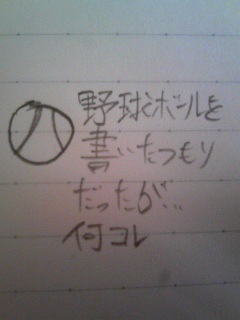 野球ボールを
書いたつもり
だったが…
何コレ